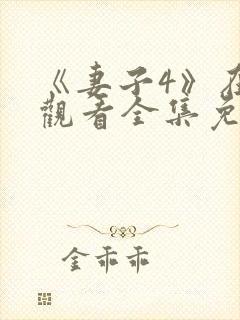 《妻子4》在
觀看全集免
金乖乖